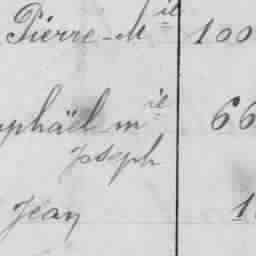 Pierre-M^il 100
phäel m^ie 66
Joseph
Jean 1